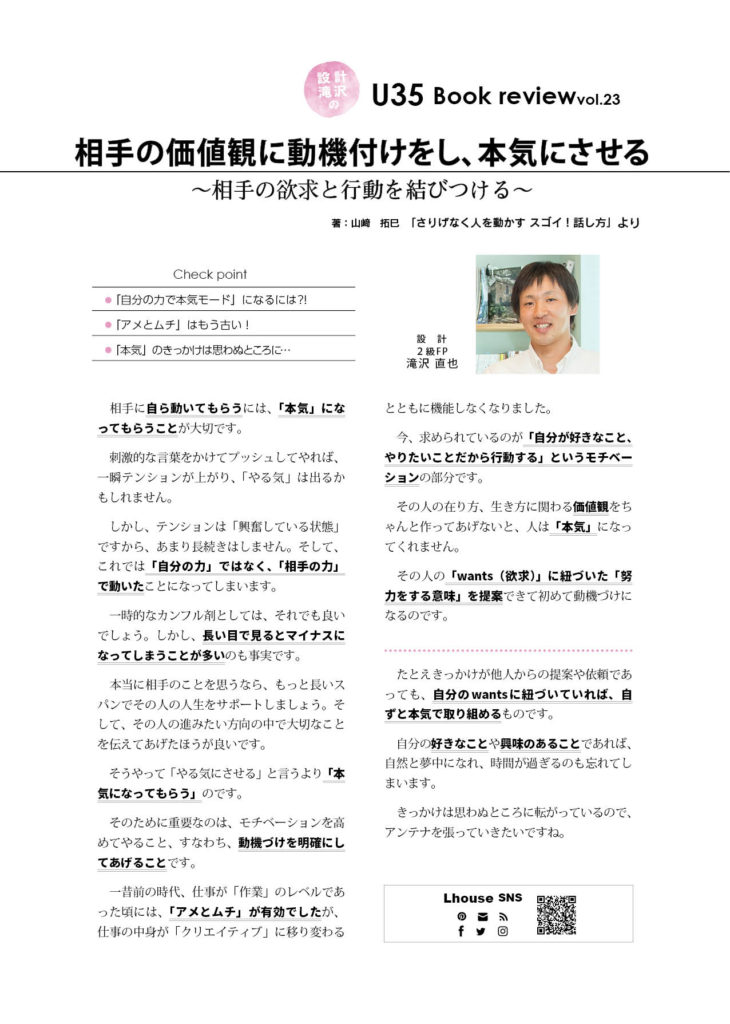 設計
滝沢の
U35 Book reviewvol.23
相手の価値観に動機付けをし、本気にさせる
～相手の欲求と行動を結びつける～
著：山﨑　拓巳　「さりげなく人を動かす スゴイ！話し方」より
Check point
●「自分の力で本気モード」になるには?!
●「アメとムチ」はもう古い！
●「本気」のきっかけは思わぬところに…
設　計
２級FP
滝沢 直也
　相手に自ら動いてもらうには、「本気」にな
ってもらうことが大切です。
　刺激的な言葉をかけてプッシュしてやれば、
一瞬テンションが上がり、「やる気」は出るか
もしれません。
　しかし、テンションは「興奮している状態」
ですから、あまり長続きはしません。そして、
これでは「自分の力」ではなく、「相手の力」
で動いたことになってしまいます。
　一時的なカンフル剤としては、それでも良い
でしょう。しかし、長い目で見るとマイナスに
なってしまうことが多いのも事実です。
　本当に相手のことを思うなら、もっと長いス
パンでその人の人生をサポートしましょう。そ
して、その人の進みたい方向の中で大切なこと
を伝えてあげたほうが良いです。
　そうやって「やる気にさせる」と言うより「本
気になってもらう」のです。
　そのために重要なのは、モチベーションを高
めてやること、すなわち、動機づけを明確にし
てあげることです。
　一昔前の時代、仕事が「作業」のレベルであ
った頃には、「アメとムチ」が有効でしたが、
仕事の中身が「クリエイティブ」に移り変わる
とともに機能しなくなりました。
　今、求められているのが「自分が好きなこと、
やりたいことだから行動する」というモチベー
ションの部分です。
　その人の在り方、生き方に関わる価値観をち
ゃんと作ってあげないと、人は「本気」になっ
てくれません。
　その人の「wants（欲求）」に紐づいた「努
力をする意味」を提案できて初めて動機づけに
なるのです。
　たとえきっかけが他人からの提案や依頼であ
っても、自分のwantsに紐づいていれば、自
ずと本気で取り組めるものです。
　自分の好きなことや興味のあることであれば、
自然と夢中になれ、時間が過ぎるのも忘れてし
まいます。
　きっかけは思わぬところに転がっているので、
アンテナを張っていきたいですね。
Lhouse SNS